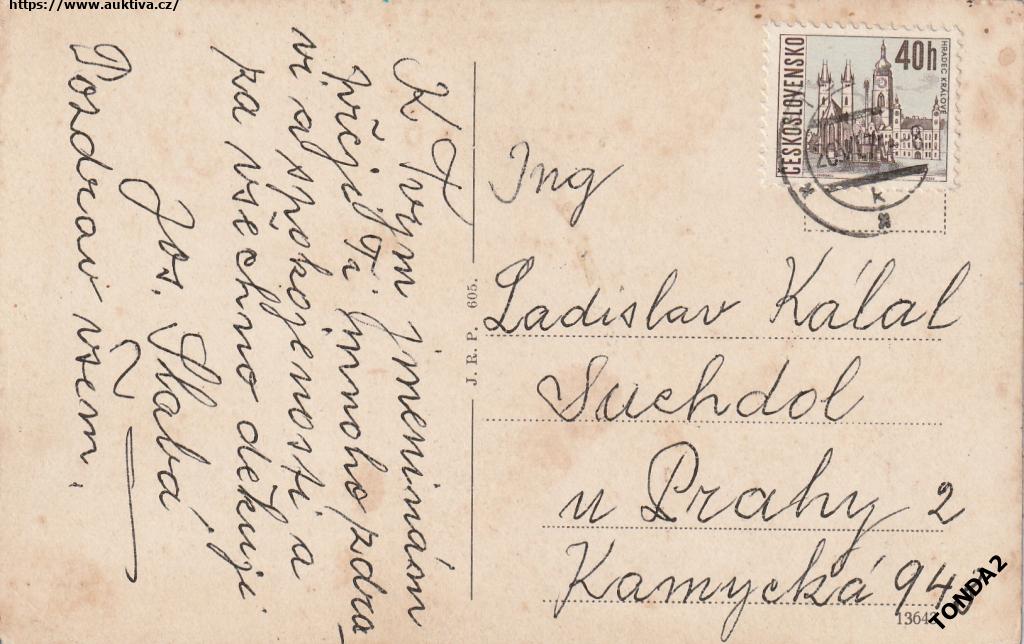 https://www.auktiva.cz/
K Tvým jmeninám
přeji Ti mnoho zdra-
ví a spokojenosti a
za všechno děkuji
Jos. Slabá
Pozdrav všem.
J. R. P. 605.
ČESKOSLOVENSKO
40h
HRADEC KRÁLOVÉ
Ing
Ladislav Kálal
Suchdol
u Prahy 2
Kamycká 94
TONDA2